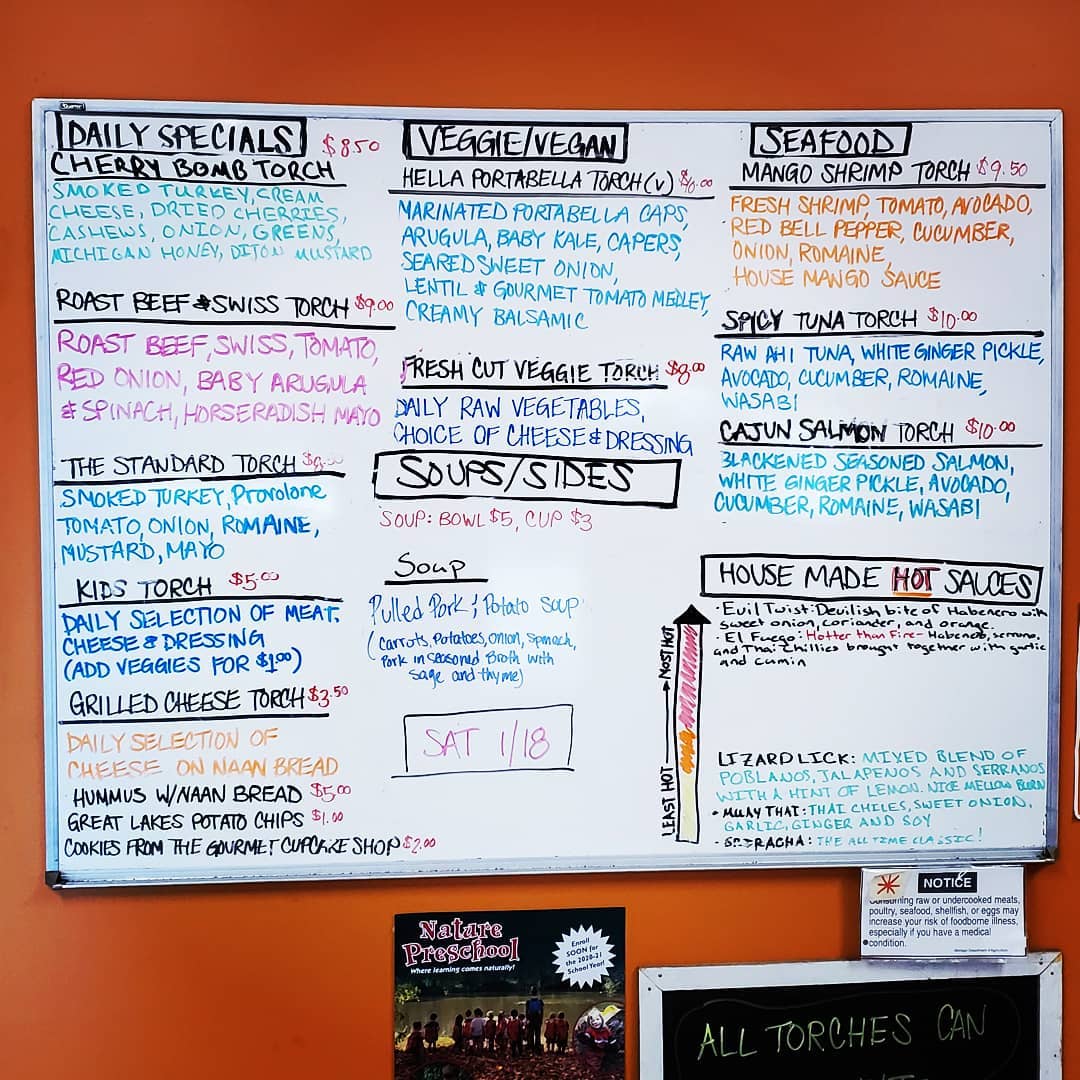 DAILY SPECIALS $8.50
CHERRY BOMB TORCH
SMOKED TURKEY, CREAM
CHEESE, DRIED CHERRIES,
CASHEWS, ONION, GREENS,
MICHIGAN HONEY, DIJON MUSTARD
ROAST BEEF & SWISS TORCH $9.00
ROAST BEEF, SWISS, TOMATO,
RED ONION, BABY ARUGULA
& SPINACH, HORSERADISH MAYO
THE STANDARD TORCH
SMOKED TURKEY, Provolone
TOMATO, ONION, ROMAINE,
MUSTARD, MAYO
KIDS TORCH $5.00
DAILY SELECTION OF MEAT,
CHEESE & DRESSING
(ADD VEGGIES FOR $1.00)
GRILLED CHEESE TORCH $3.50
DAILY SELECTION OF
CHEESE ON NAAN BREAD
HUMMUS W/NAAN BREAD $5.00
GREAT LAKES POTATO CHIPS $1.00
COOKIES FROM THE GOURMET CUPCAKE SHOP $2.00
VEGGIE/VEGAN
HELLA PORTABELLA TORCH (V)
MARINATED PORTABELLA CAPS,
ARUGULA, BABY KALE, CAPERS,
SEARED SWEET ONION,
LENTIL & GOURMET TOMATO MEDLEY,
CREAMY BALSAMIC
FRESH CUT VEGGIE TORCH $8.00
DAILY RAW VEGETABLES,
CHOICE OF CHEESE & DRESSING
SOUPS/SIDES
SOUP: BOWL $5, CUP $3
Soup
Pulled Pork & Potato Soup
(carrots, Potatoes, onion, spinach,
Pork in seasoned Broth with
sage and thyme)
SAT 1/18
SEAFOOD
MANGO SHRIMP TORCH $9.50
FRESH SHRIMP, TOMATO, AVOCADO,
RED BELL PEPPER, CUCUMBER,
ONION, ROMAINE,
HOUSE MANGO SAUCE
SPICY TUNA TORCH $10.00
RAW AHI TUNA, WHITE GINGER PICKLE,
AVOCADO, CUCUMBER, ROMAINE,
WASABI
CAJUN SALMON TORCH $10.00
BLACKENED SEASONED SALMON,
WHITE GINGER PICKLE, AVOCADO,
CUCUMBER, ROMAINE, WASABI
HOUSE MADE HOT SAUCES
• Evil Twist: Devilish bite of Habenero with
sweet onion, coriander, and orange.
• El Fuego: Hotter than Fire - Habenero, serrano,
and Thai Chillies brought together with garlic
and cumin
LEAST HOT → MOST HOT
LIZARD LICK: MIXED BLEND OF
POBLANOS, JALAPENOS AND SERRANOS
WITH A HINT OF LEMON. NICE MELLOW BURN
• MUAY THAI: THAI CHILES, SWEET ONION,
GARLIC, GINGER AND SOY
• SRIRACHA: THE ALL TIME CLASSIC!
NOTICE
Consuming raw or undercooked meats,
poultry, seafood, shellfish, or eggs may
increase your risk of foodborne illness,
especially if you have a medical
condition.
Nature
Preschool
Where learning comes naturally!
Enroll
SOON for
the 2020-21
School Year!
ALL TORCHES CAN